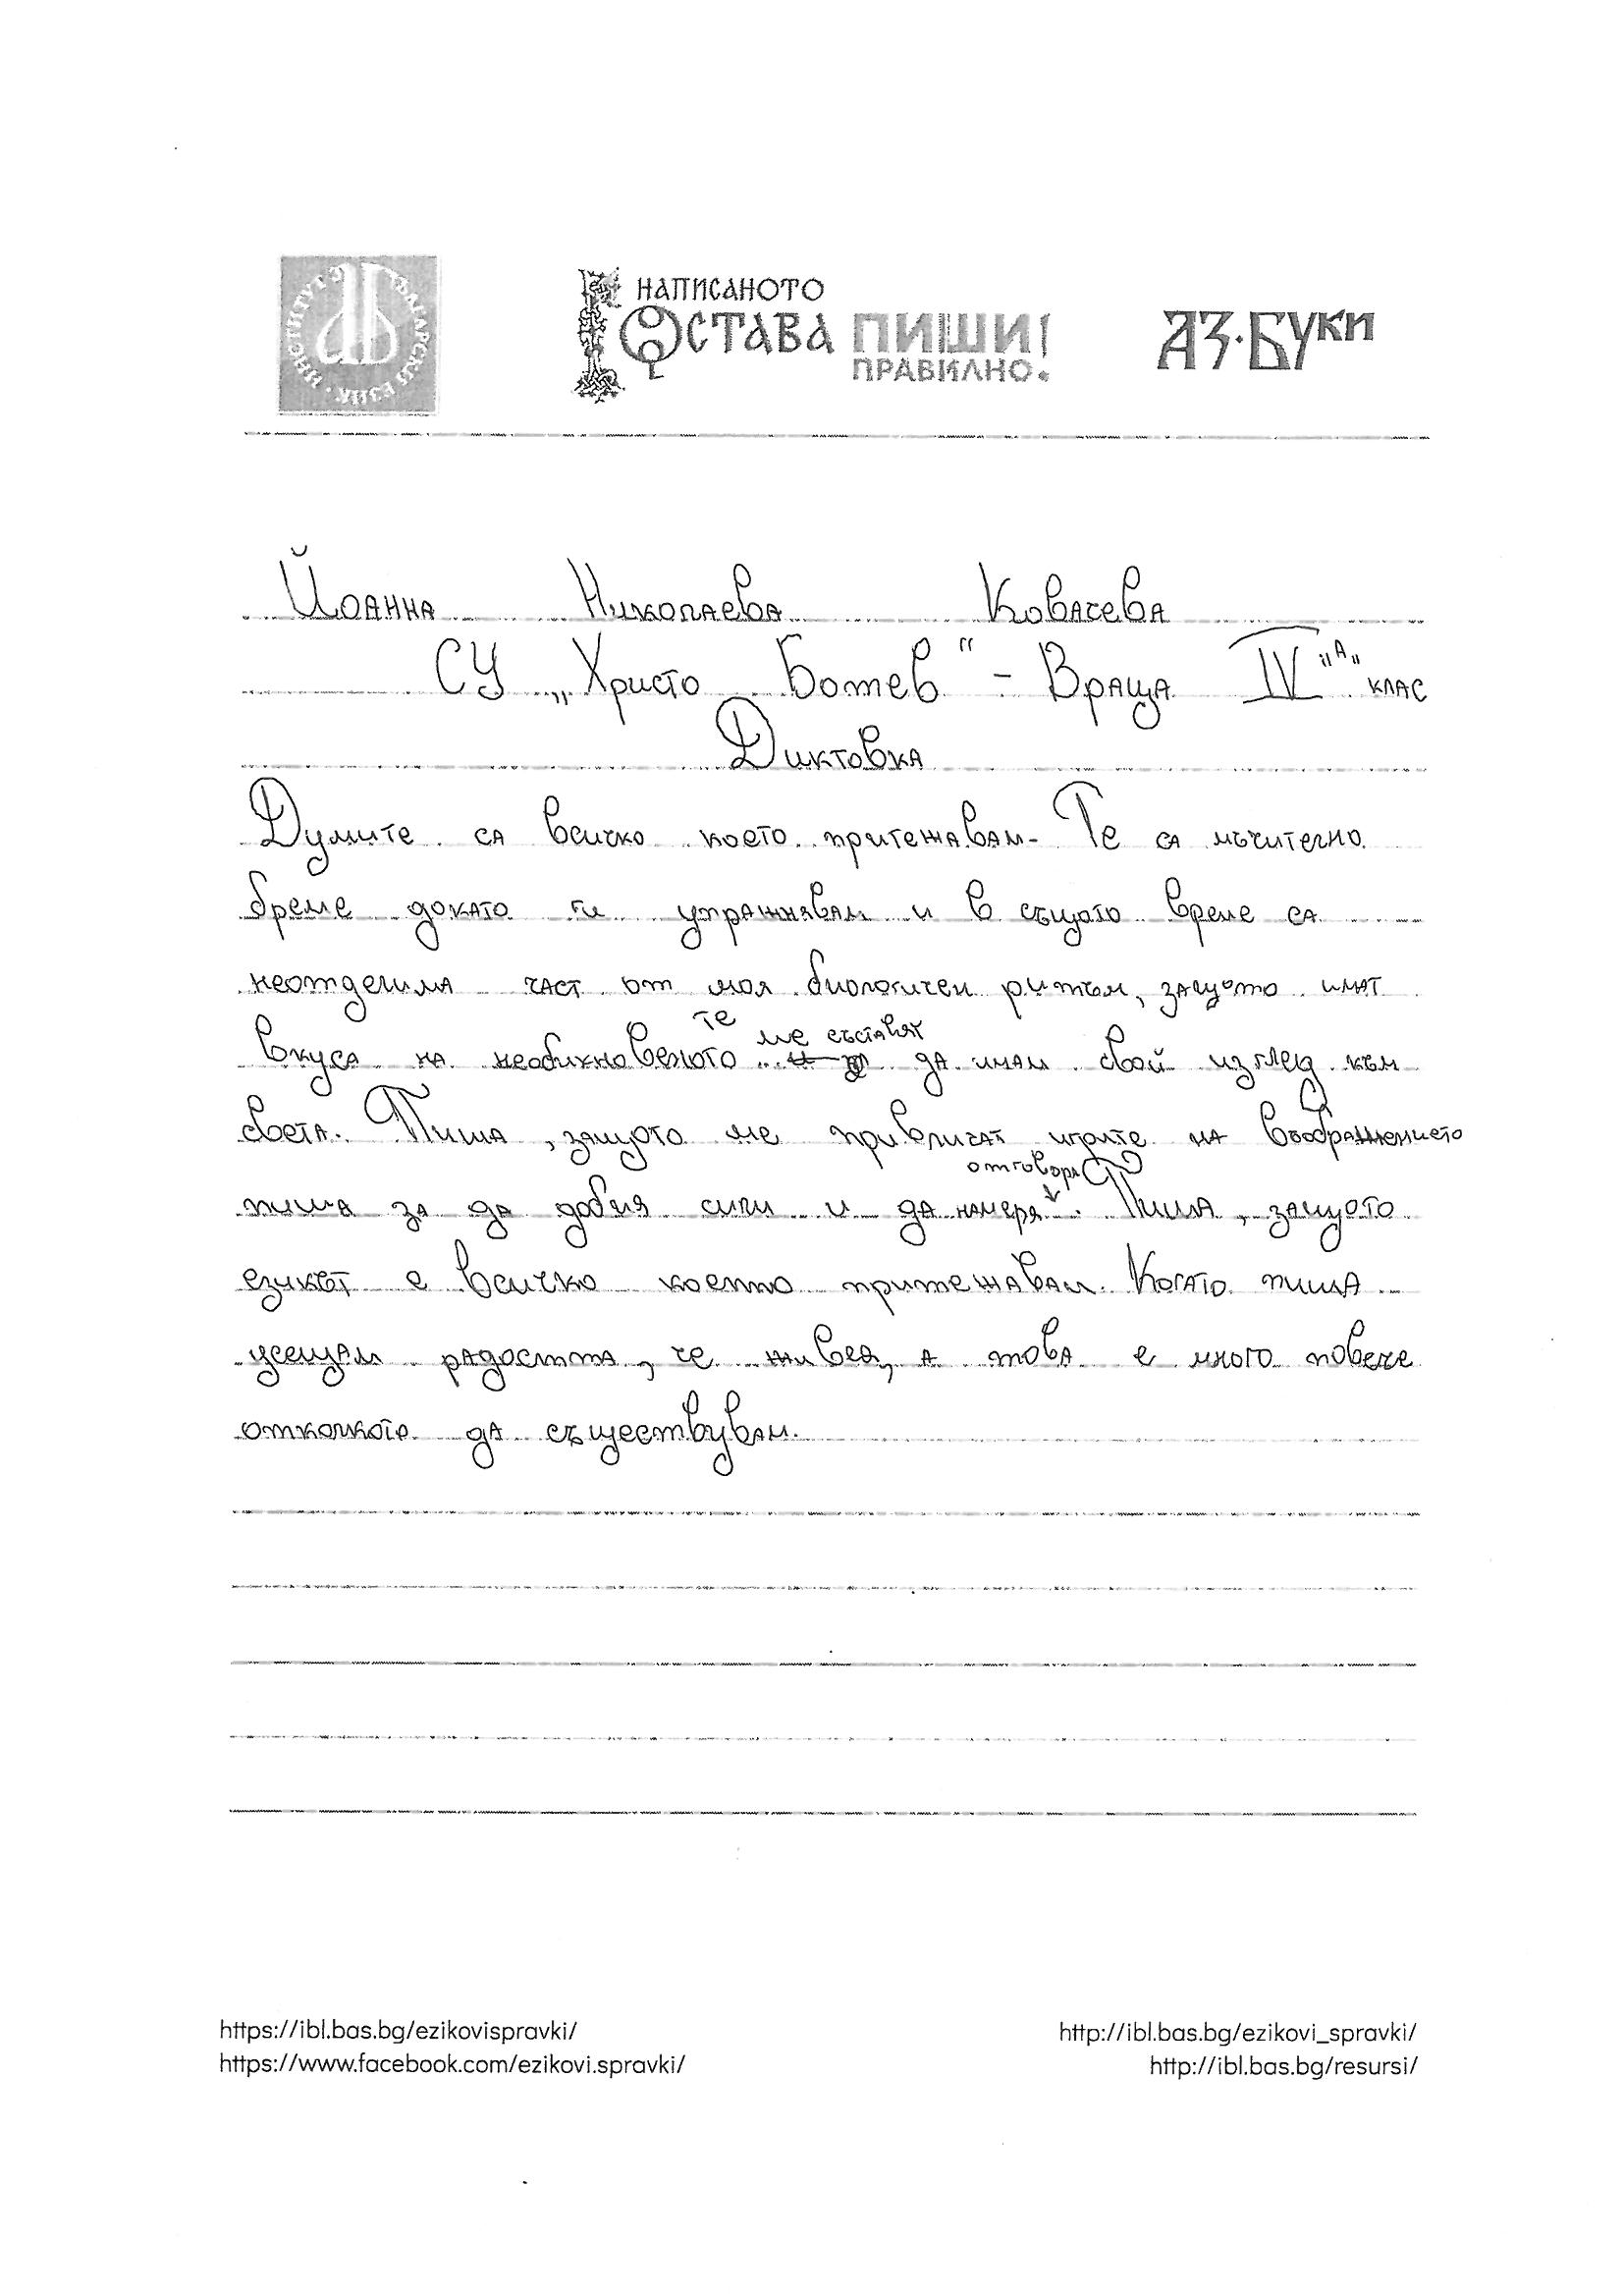 ИНСТИТУТ ЗА БЪЛГАРСКИ ЕЗИК
НАПИСАНОТО
ОСТАВА ПИШИ!
ПРАВИЛНО.
АЗ·БУКИ
Йоанна Николаева Ковачева
СУ „Христо Ботев“ - Враца IV "А" клас
Диктовка
Думите са всичко което притежавам. Те са мъчително
бреме докато ги упражнявам и в същото време са
неотделима част от моя биологичен ритъм, защото имат
вкуса на необикновеното те ме съставят да имам свой изглед към
света. Пиша, защото ме привличат игрите на въображението
пиша за да добия сили и да намеря отговори. Пиша, защото
езикът е всичко което притежавам. Когато пиша
усещам радостта, че живея, а това е много повече
отколкото да съществувам.
https://ibl.bas.bg/ezikovispravki/ http://ibl.bas.bg/ezikovi_spravki/
https://www.facebook.com/ezikovi.spravki/ http://ibl.bas.bg/resursi/